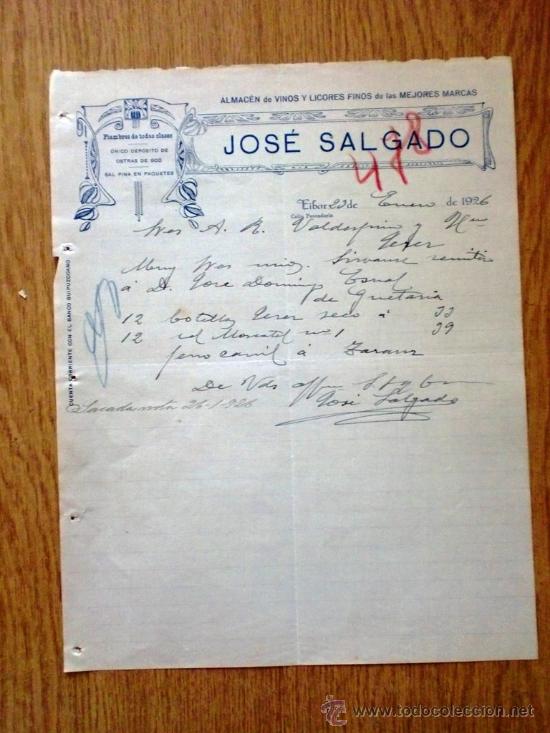 ALMACÉN de VINOS Y LICORES FINOS de las MEJORES MARCAS
Fiambres de todas clases
ÚNICO DEPOSITO DE
OSTRAS DE 600
SAL FINA EN PAQUETES
JOSÉ SALGADO
488
Eibar 23 de Enero de 1926
Calle
Sres A. R. Valdespino y Hno
Jerez
Muy Sres mios. Sirvanse remitir
á D. Jose Domingo
de Guetaria
12 botellas Jerez seco á 33
12 id Moscatel nº 1 39
ferrocarril á Zarauz
De Vds affmo
José Salgado
Sacada nota 26-1-926
CUENTA CORRIENTE CON EL BANCO GUIPUZCOANO
todocoleccion
www.todocoleccion.net